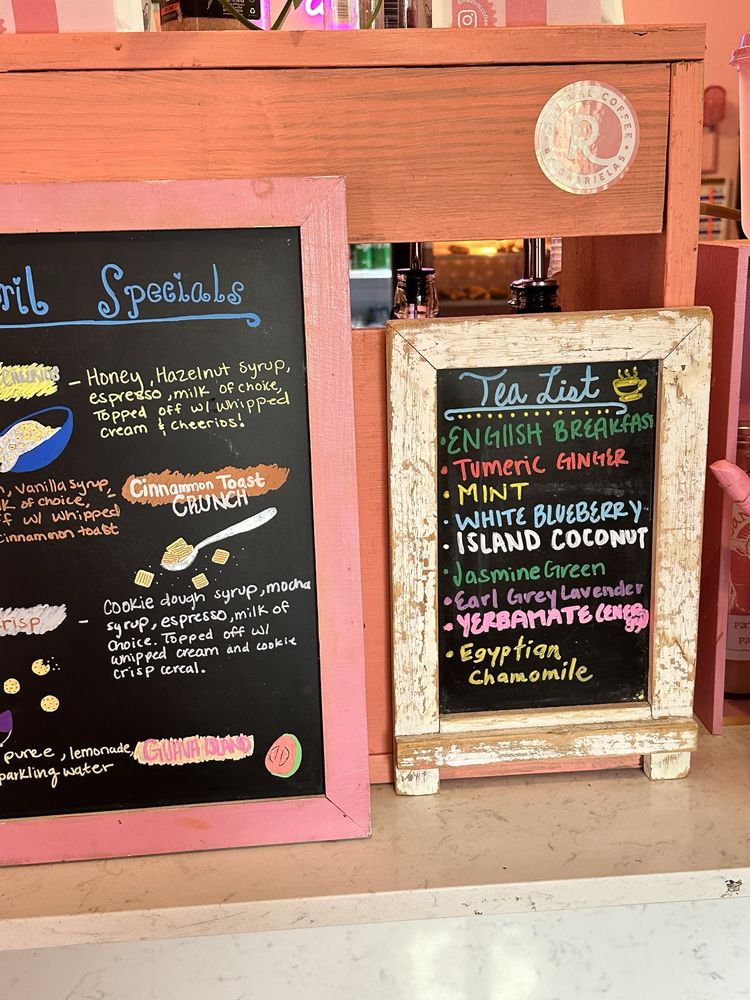 ril Specials
CHEERIOS
- Honey, Hazelnut Syrup,
espresso, milk of choice,
Topped off w/ whipped
cream & cheerios!
, vanilla syrup,
lk of choice,
ff w/ whipped
cinnammon toast
Cinnammon Toast
CRUNCH
risp
- Cookie dough syrup, mocha
syrup, espresso, milk of
choice. Topped off w/
whipped cream and cookie
crisp cereal.
puree, lemonade,
parkling water
GUAVA ISLAND
COFFEE
R
Tea List
• ENGLISH BREAKFAST
• Tumeric GINGER
• MINT
• WHITE BLUEBERRY
• ISLAND COCONUT
• Jasmine Green
• Earl Grey Lavender
• YERBAMATE (ENERGY
• Egyptian
Chamomile